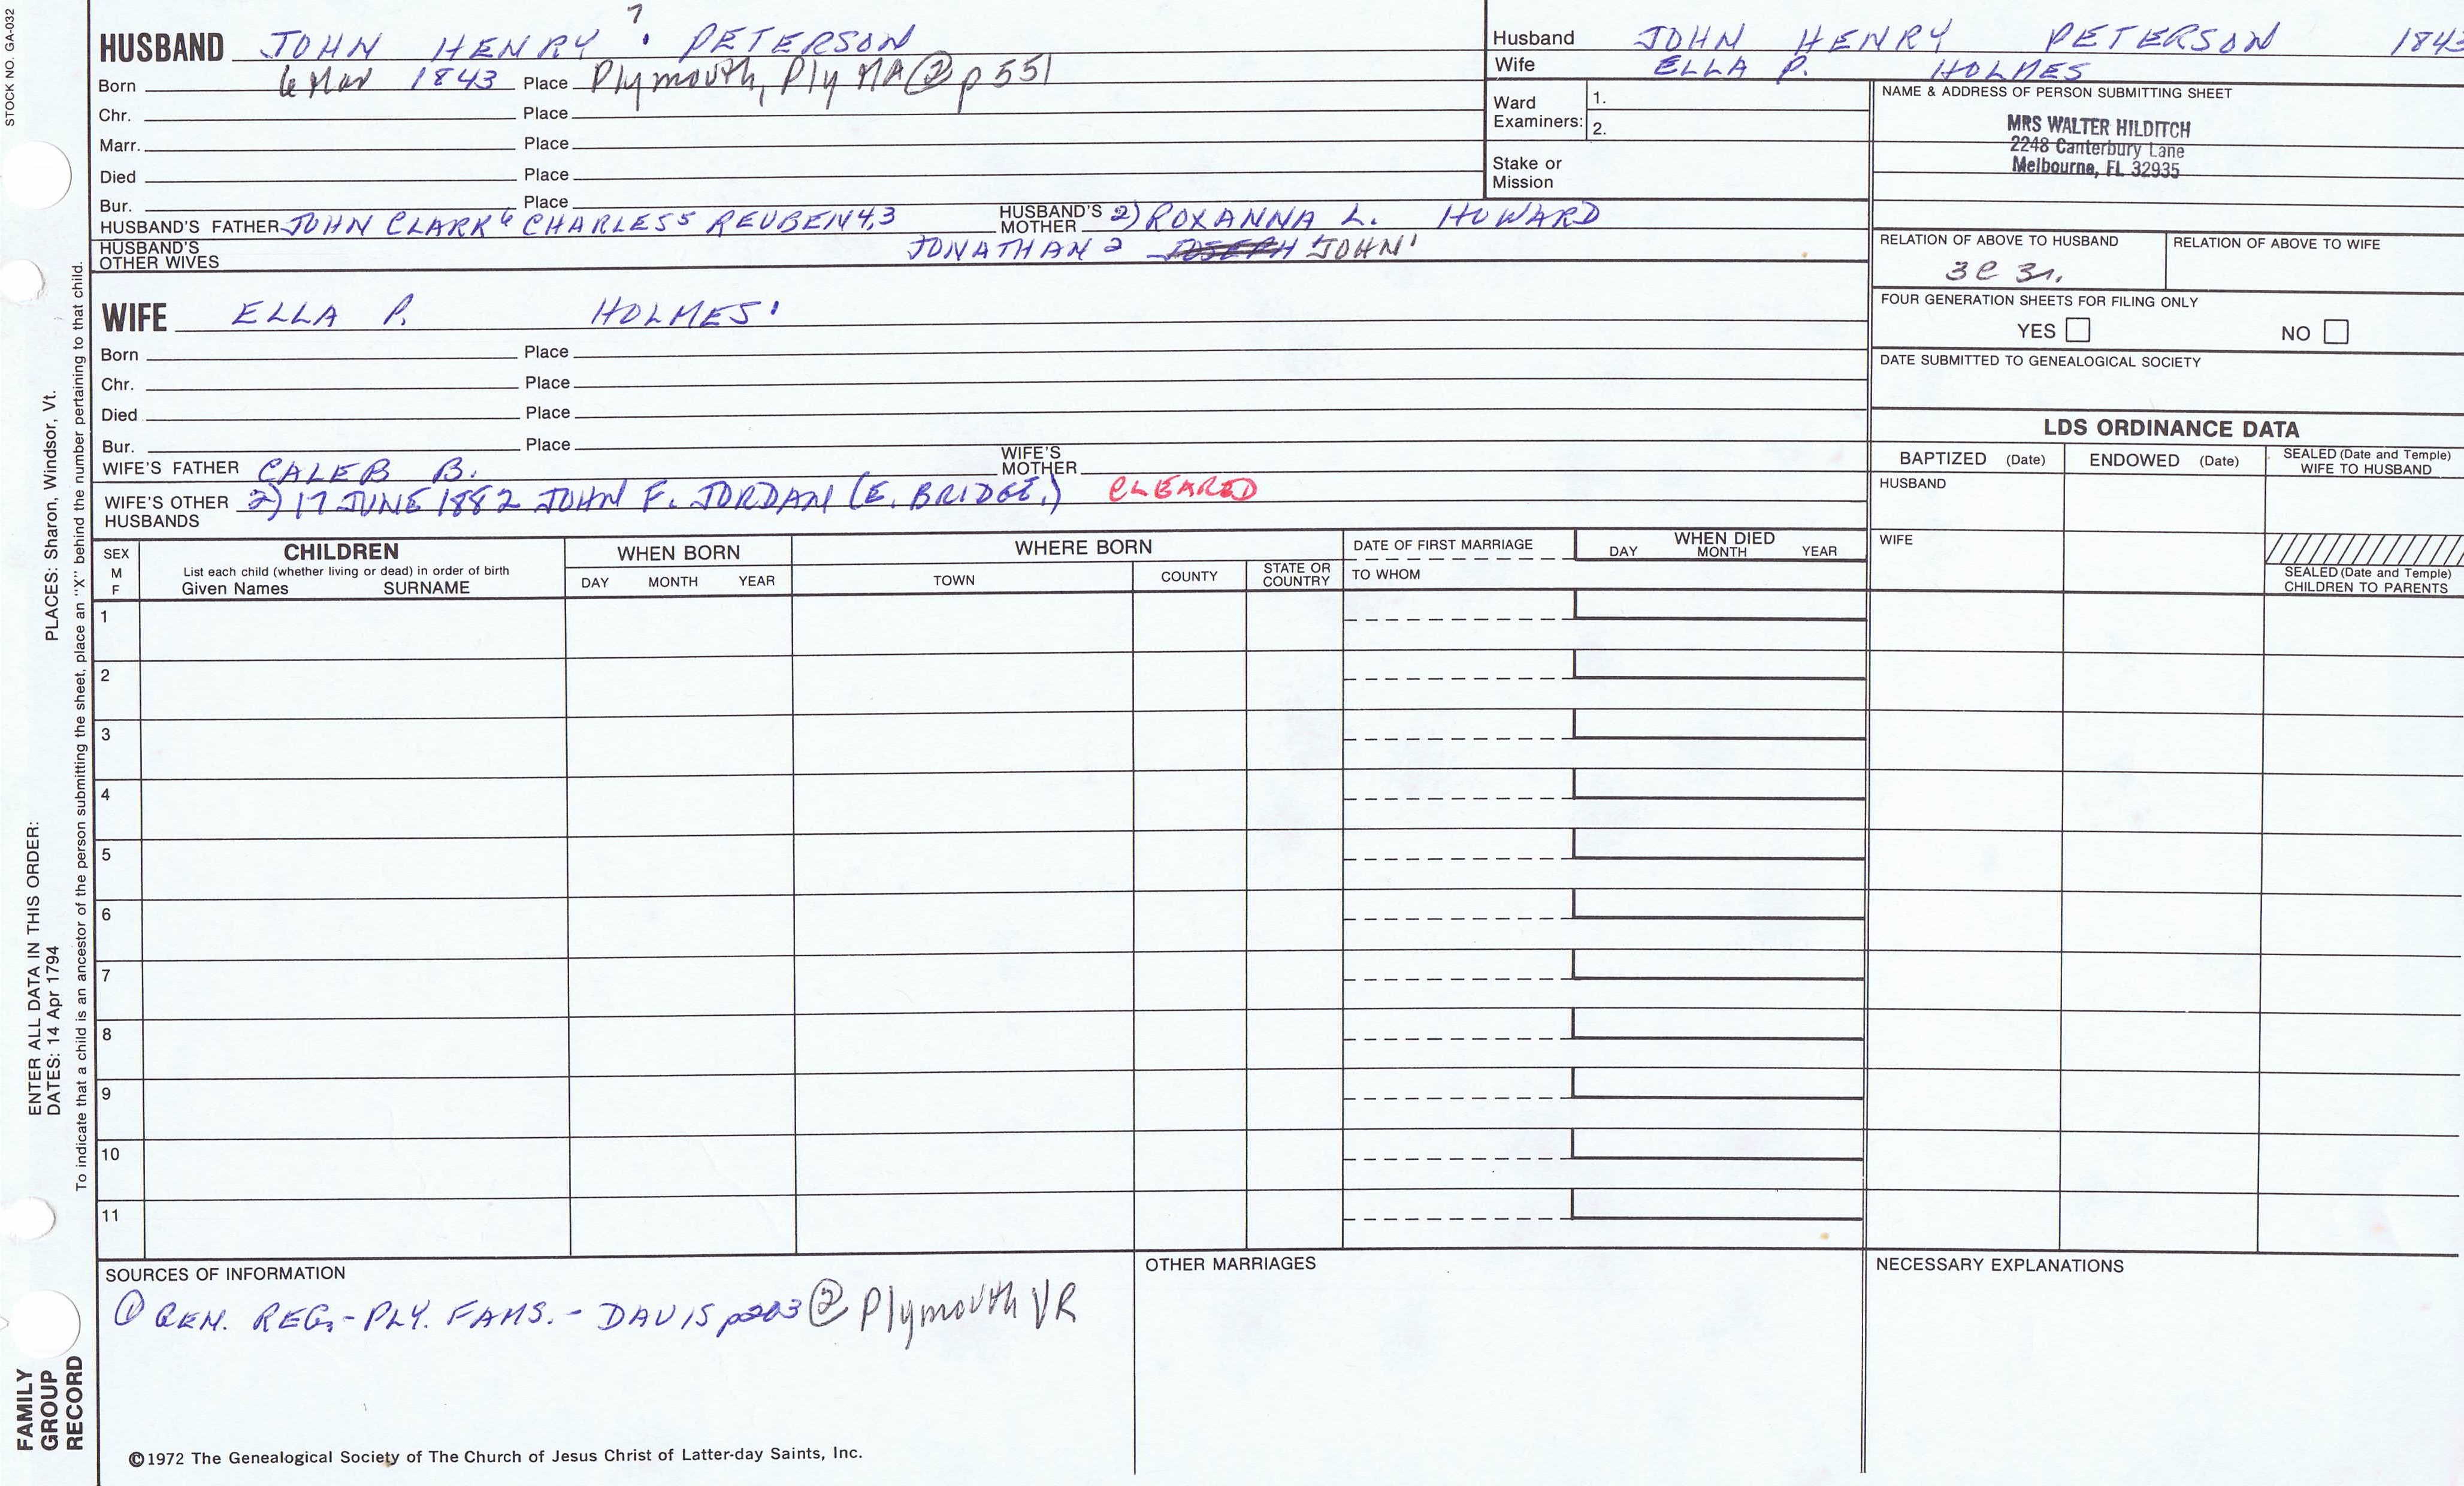 STOCK NO. GA-032
HUSBAND JOHN HENRY 7 PETERSON
Born 6 Mar 1843 Place Plymouth, Ply MA ② p 551
Chr. Place
Marr. Place
Died Place
Bur. Place
HUSBAND'S FATHER JOHN CLARK 6 CHARLES 5 REUBEN 4,3 HUSBAND'S MOTHER 2) ROXANNA L. HOWARD
HUSBAND'S OTHER WIVES JONATHAN 2 JOSEPH JOHN 1
WIFE ELLA P. HOLMES 1
Born Place
Chr. Place
Died Place
Bur. Place
WIFE'S FATHER CALEB B. WIFE'S MOTHER
WIFE'S OTHER HUSBANDS 2) 17 JUNE 1882 JOHN F. JORDAN (E. BRIDGE.) CLEARED
Husband JOHN HENRY PETERSON 1843
Wife ELLA P. HOLMES
Ward Examiners: 1.
2.
Stake or Mission
NAME & ADDRESS OF PERSON SUBMITTING SHEET
MRS WALTER HILDITCH
2248 Canterbury Lane
Melbourne, FL 32935
RELATION OF ABOVE TO HUSBAND RELATION OF ABOVE TO WIFE
3C 3r.
FOUR GENERATION SHEETS FOR FILING ONLY
YES NO
DATE SUBMITTED TO GENEALOGICAL SOCIETY
LDS ORDINANCE DATA
BAPTIZED (Date) ENDOWED (Date) SEALED (Date and Temple) WIFE TO HUSBAND
HUSBAND
WIFE
SEALED (Date and Temple) CHILDREN TO PARENTS
SEX M F
CHILDREN
List each child (whether living or dead) in order of birth
Given Names SURNAME
WHEN BORN
DAY MONTH YEAR
WHERE BORN
TOWN COUNTY STATE OR COUNTRY
DATE OF FIRST MARRIAGE
TO WHOM
WHEN DIED
DAY MONTH YEAR
1
2
3
4
5
6
7
8
9
10
11
SOURCES OF INFORMATION
① GEN. REG.-PLY. FAMS. - DAVIS p203 ② Plymouth VR
OTHER MARRIAGES
NECESSARY EXPLANATIONS
©1972 The Genealogical Society of The Church of Jesus Christ of Latter-day Saints, Inc.
FAMILY GROUP RECORD
ENTER ALL DATA IN THIS ORDER:
DATES: 14 Apr 1794
PLACES: Sharon, Windsor, Vt.
To indicate that a child is an ancestor of the person submitting the sheet, place an "X" behind the number pertaining to that child.